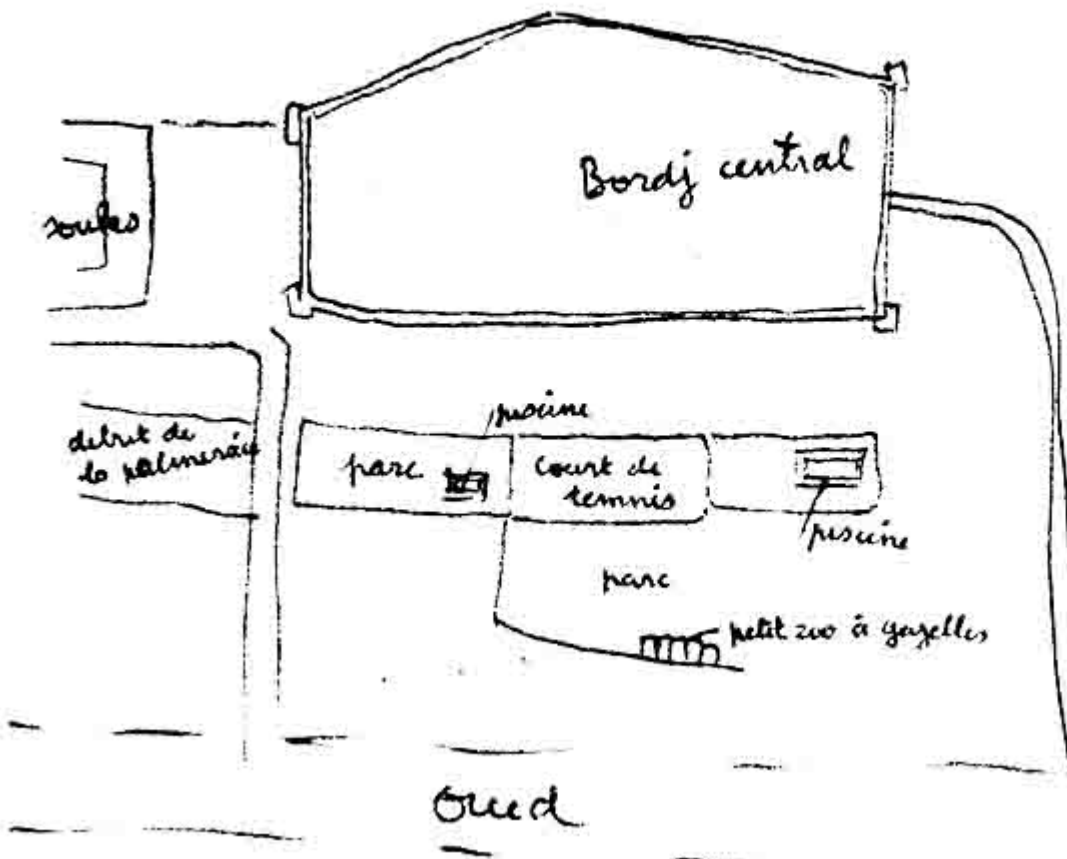 Bordj central
soukes
piscine
debut de
la palmeraie
parc
court de
temnis
piscine
parc
petit zoo à gazelles
Oued